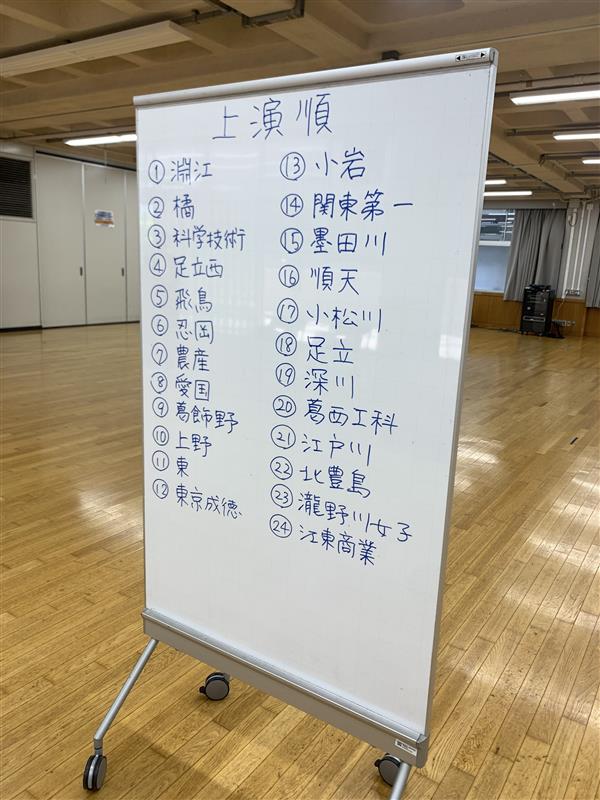 上演順
① 淵江
② 橘
③ 科学技術
④ 足立西
⑤ 飛鳥
⑥ 忍岡
⑦ 農産
⑧ 愛国
⑨ 葛飾野
⑩ 上野
⑪ 東
⑫ 東京成徳
⑬ 小岩
⑭ 関東第一
⑮ 墨田川
⑯ 順天
⑰ 小松川
⑱ 足立
⑲ 深川
⑳ 葛西工科
㉑ 江戸川
㉒ 北豊島
㉓ 瀧野川女子
㉔ 江東商業